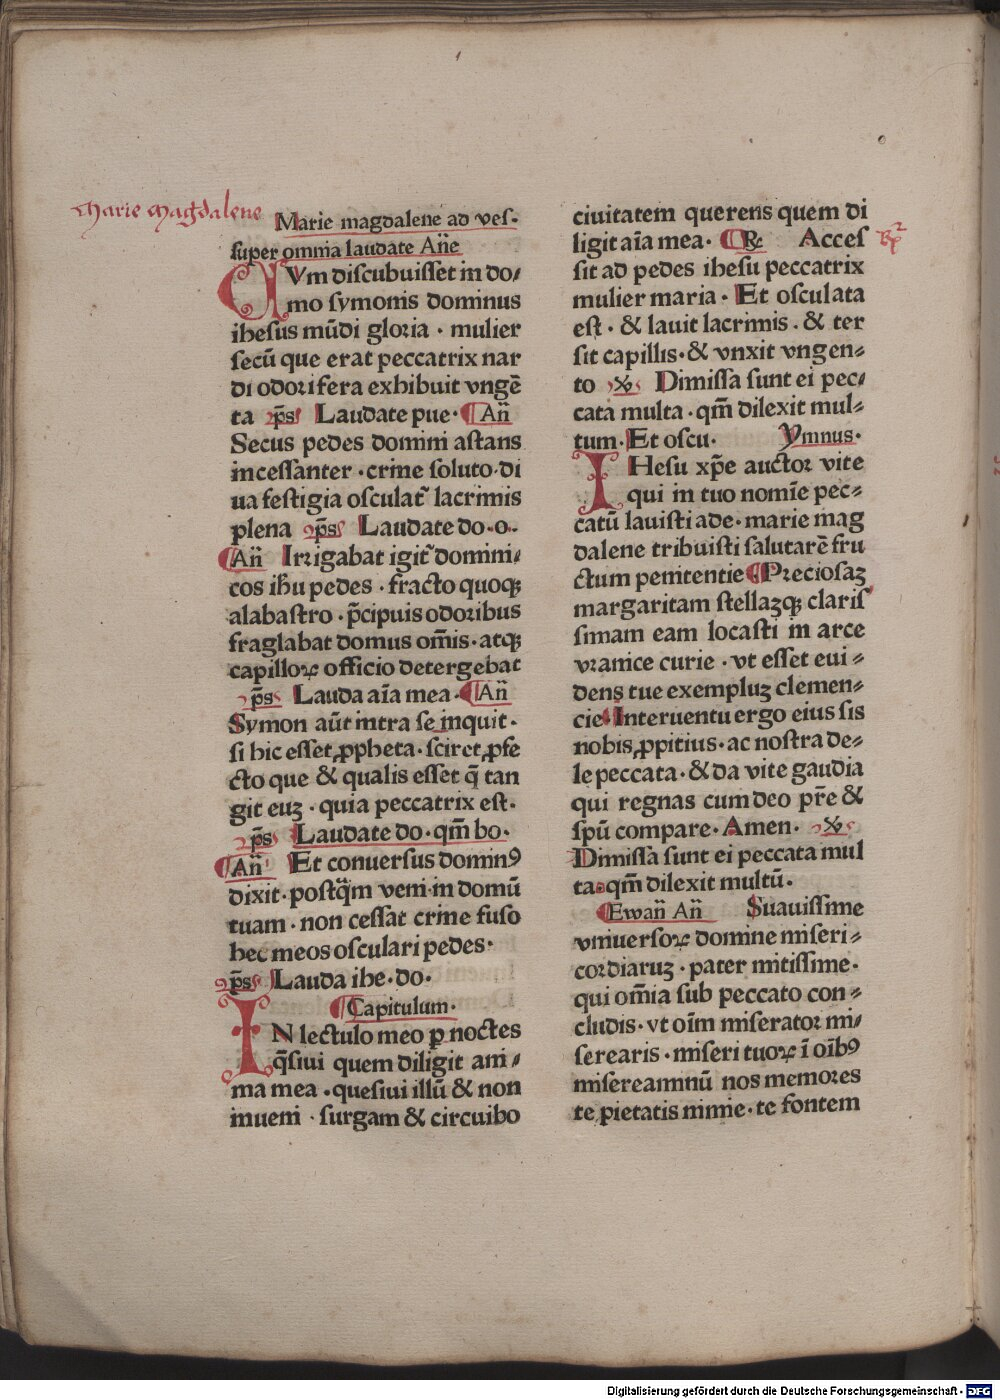 Marie Magdalene
Marie magdalene ad ves⸗
super omnia laudate Añe
CVm discubuisset in do⸗
mo symonis dominus
ihesus mūdi gloria · mulier
secū que erat peccatrix nar
di odorifera exhibuit vngē
ta p̄s Laudate pue· Añ
Secus pedes domini astans
incessanter · crine soluto·di
ua festigia osculat᷒ lacrimis
plena p̄s Laudate do·o·
Añ Irrigabat igit᷒ domini⸗
cos ihu pedes · fracto quoqꝫ
alabastro · p̄cipuis odoribus
fraglabat domus om̄is·atqꝫ
capilloꝝ officio detergebat
p̄s Lauda aīa mea· Añ
Symon aūt intra se inquit·
si hic esset ꝓpheta · sciret ꝓfe
cto que & qualis esset q̄ tan
git euꝫ · quia peccatrix est·
p̄s Laudate do·qm̄ bo·
Añ Et conuersus dominꝰ
dixit·postq̄m veni in domū
tuam·non cessat crine fuso
hec meos osculari pedes·
p̄s Lauda ihe·do·
Capitulum·
IN lectulo meo ꝑ noctes
q̄siui quem diligit ani⸗
ma mea ·quesiui illū & non
inueni · surgam & circuibo
ciuitatem querens quem di
ligit aīa mea· ℞ Acces
sit ad pedes ihesu peccatrix
mulier maria· Et osculata
est· & lauit lacrimis·& ter
sit capillis·& vnxit vngen⸗
to ℣ Dimissa sunt ei pec⸗
cata multa·qm̄ dilexit mul⸗
tum·Et oscu· Ymnus·
IHesu xp̄e auctor vite
qui in tuo nomīe pec⸗
catū lauisti ade·marie mag
dalene tribuisti salutarē fru
ctum penitentie Preciosaꝫ
margaritam stellaꝫqꝫ claris
simam eam locasti in arce
vranice curie·vt esset eui⸗
dens tue exempluꝫ clemen⸗
cie Interuentu ergo eius sis
nobis ꝓpitius·ac nostra de⸗
le peccata·& da vite gaudia
qui regnas cum deo pr̄e &
spū compare·Amen· ℣
Dimissa sunt ei peccata mul
ta·qm̄ dilexit multū·
Ewañ Añ Suauissime
vniuersoꝝ domine miseri⸗
cordiaruꝫ·pater mitissime·
qui om̄ia sub peccato con⸗
cludis·vt oīm miserator mi⸗
serearis·miseri tuoꝝ ī oībꝰ
misereaminū nos memores
te pietatis nimie·te fontem